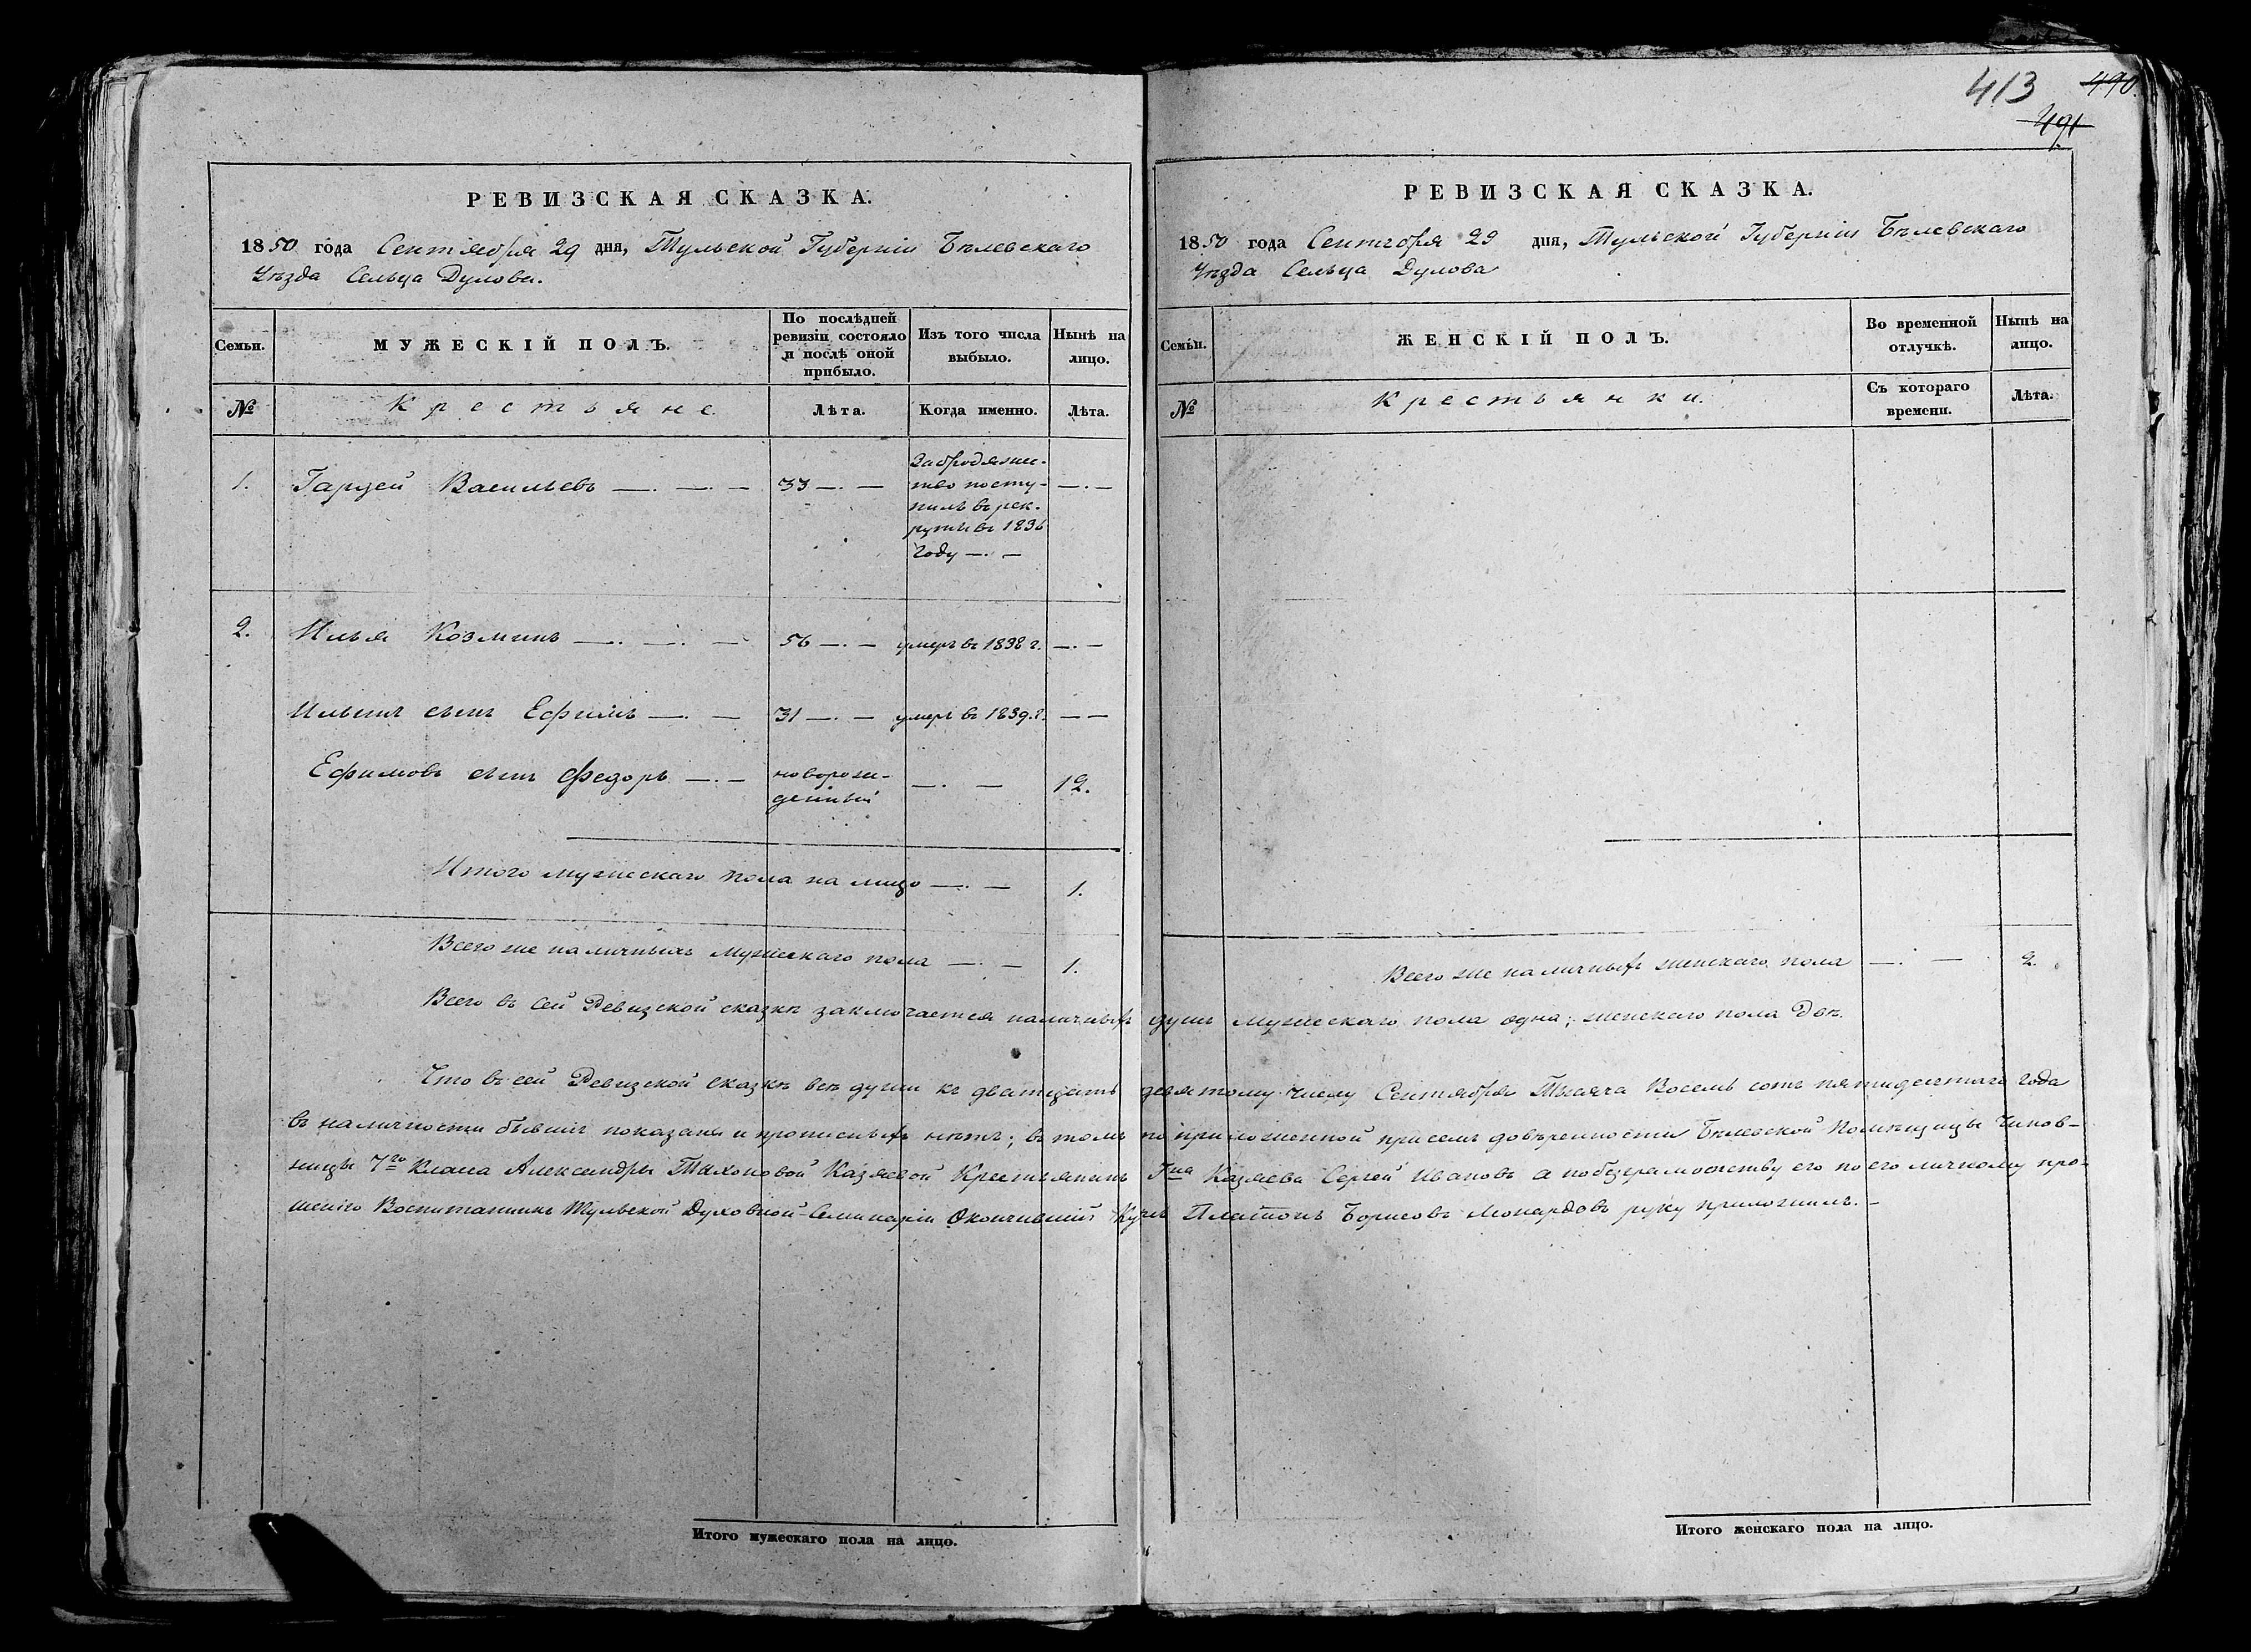 413 490.
491
РЕВИЗСКАЯ СКАЗКА.
1850 года Сентября 29 дня, Тульской Губерніи Бѣлевскаго
Уѣзда Сельца Дулова.
Семьи.
МУЖЕСКІЙ ПОЛЪ.
По послѣдней
ревизіи состояло
и послѣ оной
прибыло.
Изъ того числа
выбыло.
Нынѣ на
лицо.
№
Крестьяне.
Лѣта.
Когда именно.
Лѣта.
1. Гардей Васильевъ —.—.— 33 —.— —.—
За бродяжни-
тво посту-
пилъ въ рек-
руты въ 1836
году —.—
2. Илья Козминъ —.—.— 56 —.— умеръ въ 1838 г. —.—
Ильинъ сынъ Ефимъ —.— 31 —.— умеръ въ 1839. г. ——
Ефимовъ сынъ Федоръ —.— новорож-
денный —.— 12.
Итого мужескаго пола на лицо —.— 1.
Всего же наличныхъ мужескаго пола —.— 1.
РЕВИЗСКАЯ СКАЗКА.
1850 года Сентября 29 дня, Тульской Губерніи Бѣлевскаго
Уѣзда Сельца Дулова
Семьи.
ЖЕНСКІЙ ПОЛЪ.
Во временной
отлучкѣ.
Нынѣ на
лицо.
№
Крестьянки.
Съ котораго
времени.
Лѣта.
Всего же наличныхъ женскаго пола —.— 2.
Всего въ сей Ревизской сказкѣ заключается наличныхъ душъ мужескаго пола одна; женскаго пола двѣ.
Что въ сей Ревизской сказкѣ всѣ души къ дватцать девятому числу Сентября Тысяча Восемь сотъ пятидесятаго года
въ наличности бывшiе показаны и прописныхъ нѣтъ; въ томъ по приложенной присемъ довѣренности Бѣлевской Помѣщицы Чинов-
ницы 7го класа Александры Тихоновой Казяевой Крестьянинъ Гна Казяева Сергей Ивановъ а по безграмотству его по его личному про-
шенію Воспитанникъ Тульской Духовной Семинаріи Окончившій Курсъ Платонъ Борисовъ руку приложилъ.—
Итого мужескаго пола на лицо.
Итого женскаго пола на лицо.